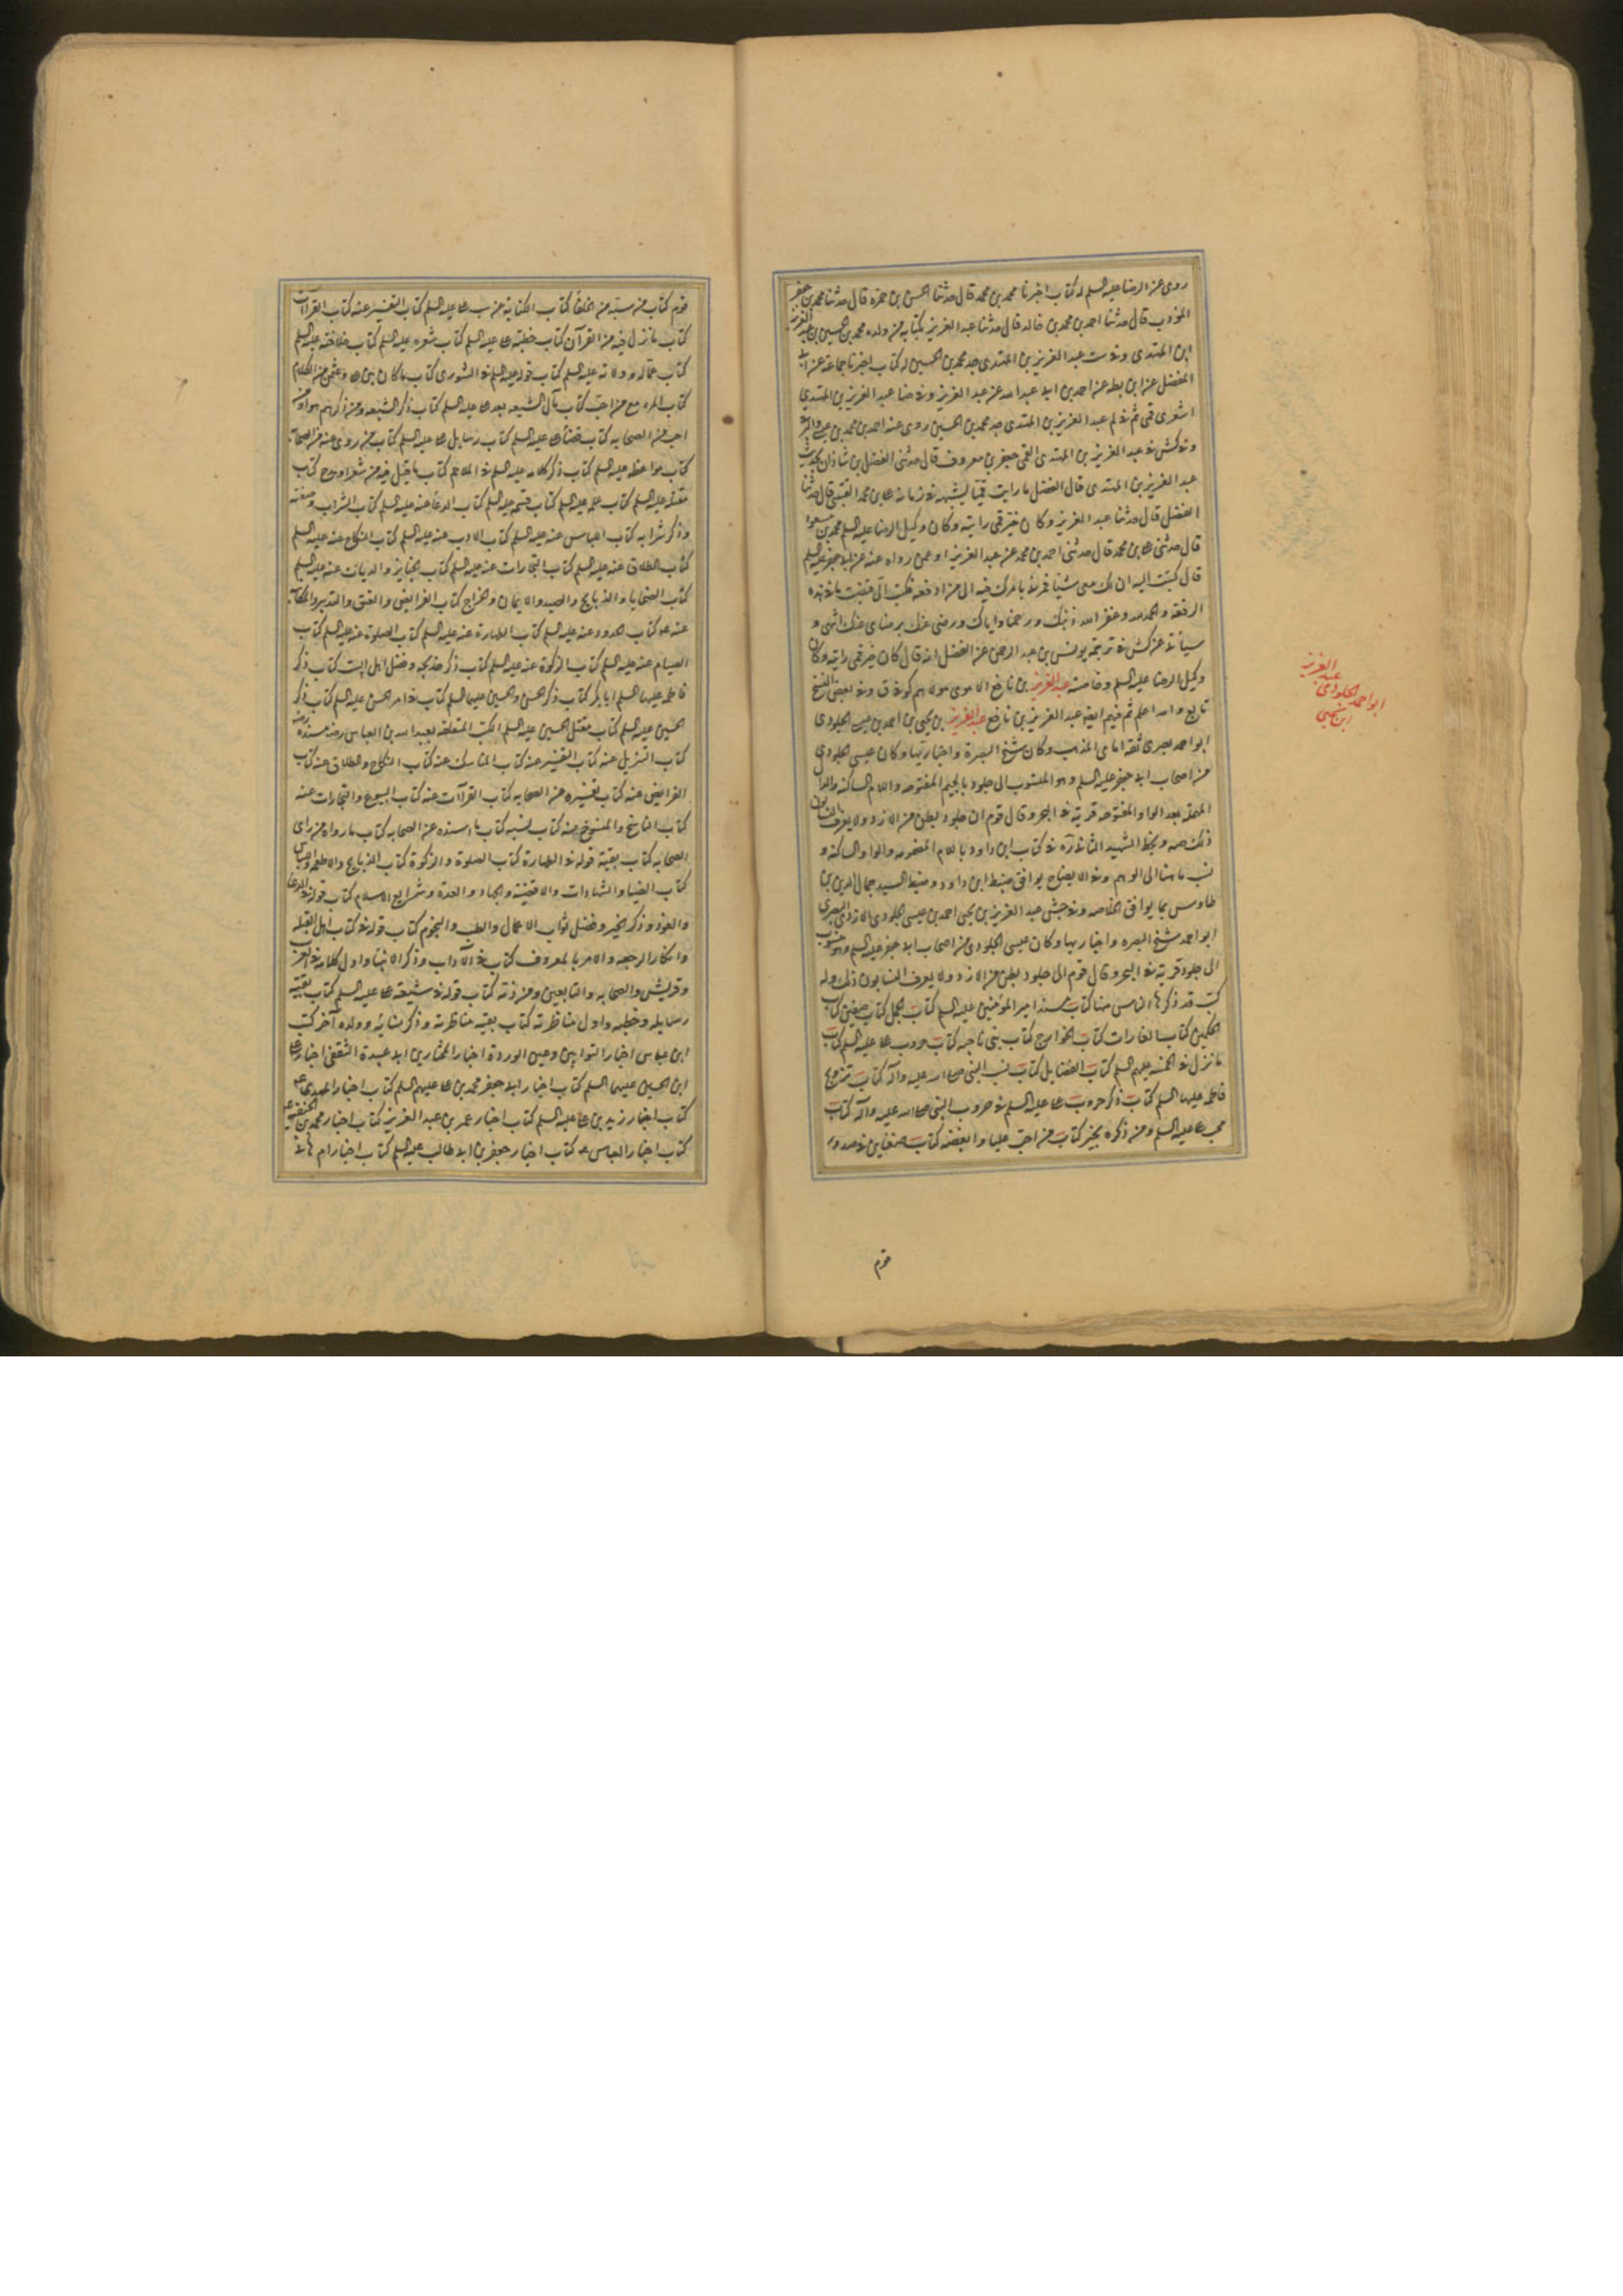 روى عن الرضا عليه السلم له كتاب اخبرنا محمد بن محمد قال حدثنا الحسن بن حمزة قال حدثنا محمد بن جعفر
المؤدب قال حدثنا احمد بن محمد بن خالد قال حدثنا عبد العزيز بكتابه من ولده محمد بن الحسين بن عبد العزيز
ابن المهتدى وفي ست عبد العزيز بن المهتدى جد محمد بن الحسين له كتاب اخبرنا جماعة عن ابى
المفضل عن ابن بطه عن احمد بن ابى عبد الله عن عبد العزيز وفي ضا عبد العزيز بن المهتدى
اشعرى قمى ثم في لم عبد العزيز بن المهتدى جد محمد بن الحسين روى عنه احمد بن محمد بن عيسى والبرقى
وفي كش في عبد العزيز بن المهتدى القمى جعفر بن معروف قال حدثنى الفضل بن شاذان بحديث
عبد العزيز بن المهتدى قال الفضل ما رايت قميا يشبهه في زمانه على بن محمد القتيبى قال حدثنا
الفضل قال حدثنا عبد العزيز وكان خير قمى رايته وكان وكيل الرضا عليه السلم محمد بن مسعود
قال حدثنى على بن محمد قال حدثنى احمد بن محمد عن عبد العزيز او عمن رواه عنه عن ابى جعفر عليه السلم
قال كتبت اليه ان لك معى شيئا فمرنى بامرك فيه الى من ادفعه فكتب الى قبضت ما في هذه
الرقعة والحمد لله وغفر الله ذنبك ورحمنا واياك ورضى عنك برضاى عنك انتهى و
سياتى عن كش في ترجمة يونس بن عبد الرحمن عن الفضل انه قال كان خير قمى رايته وكان
وكيل الرضا عليه السلم وخاصته عبد العزيز بن نارفع الاموى مولاهم كوفى ق وفي بعض النسخ
نافع والله اعلم ثم فيهم ايضا عبد العزيز بن نارفع عبد العزيز بن يحيى بن احمد بن عيسى الجلودى
ابو احمد بصرى ثقة امامى المذهب وكان شيخ البصرة واخباريها وكان عيسى الجلودى
من اصحاب ابى جعفر عليه السلم وهو المنسوب الى جلود بالجيم المفتوحة واللام الساكنة والدال
المهملة بعد الواو المفتوحة قرية في البحر وقال قوم ان جلود بطن من الازد ولا يعرف النسابون
ذلك صه وبخط الشهيد الثانى انه في كتاب ابن داود باللام المضمومة والواو الساكنة و
نسب ما هنا الى الوهم وفي الايضاح يوافق ضبط ابن داود وضبط السيد جمال الدين بن
طاوس بما يوافق الخلاصه وفي جش عبد العزيز بن يحيى احمد بن عيسى الجلودى الازدى البصرى
ابو احمد شيخ البصره واخباريها وكان عيسى الجلودى من اصحاب ابى جعفر عليه السلم وهو منسوب
الى جلود قرية في البحر وقال قوم الى جلود بطن من الازد ولا يعرف النسابون ذلك وله
كتب قد ذكرها الناس منها كتاب مسند امير المؤمنين عليه السلم كتاب الجمل كتاب صفين كتاب
الحكمين كتاب الغارات كتاب الخوارج كتاب بنى ناجيه كتاب حروب على عليه السلم كتاب
ما نزل في الخمسة عليهم السلم كتاب الفضايل كتاب نسب النبى صلى الله عليه وآله كتاب تزويج
فاطمه عليها السلم كتاب ذكر حروب على عليه السلم في حروب النبى صلى الله عليه وآله كتاب
محب على عليه السلم ومن ذكره بخير كتاب من احب عليا وابغضه كتاب ضغاين في صدور
قوم
عبد العزيز
ابو احمد الجلودى
ابن يحيى
قوم كتاب من سبه من الخلفا كتاب الكناية عن سب على عليه السلم كتاب التفسير عنه كتاب القراآت
كتاب ما نزل فيه من القرآن كتاب خطبه على عليه السلم كتاب شعره عليه السلم كتاب خلافته عليه السلم
كتاب عماله وولاته عليه السلم كتاب قوله عليه السلم في الشورى كتاب ما كان بين على وعثمن من الكلام
كتاب المرء مع من احب كتاب مآل الشيعه بعد على عليه السلم كتاب ذكر الشيعه ومن ذكرهم هو او من
احب من الصحابه كتاب قضاء على عليه السلم كتاب رسايل على عليه السلم كتاب من روى عنه من الصحابه
كتاب مواعظه عليه السلم كتاب ذكر كلامه عليه السلم في الملاحم كتاب ما قيل فيه من شعر او مدح كتاب
مقتله عليه السلم كتاب علمه عليه السلم كتاب قسمه عليه السلم كتاب الدعا عنه عليه السلم كتاب الشراب وصفته
وذكر شرابه كتاب اللباس عنه عليه السلم كتاب الادب عنه عليه السلم كتاب النكاح عنه عليه السلم
كتاب الطلاق عنه عليه السلم كتاب التجارات عنه عليه السلم كتاب الجنايز والديات عنه عليه السلم
كتاب الضحايا والذبايح والصيد والايمان والخراج كتاب الفرايض والعتق والتدبير والمكاتبه
عنه عه كتاب الحدود عنه عليه السلم كتاب الطهارة عنه عليه السلم كتاب الصلوة عنه عليه السلم كتاب
الصيام عنه عليه السلم كتاب الزكوة عنه عليه السلم كتاب ذكر خديجه وفضل اهل البيت كتاب ذكر
فاطمه عليها السلم ابا بكر كتاب ذكر الحسن والحسين عليهما السلم كتاب في امر الحسن عليه السلم كتاب ذكر
الحسين عليه السلم كتاب مقتل الحسين عليه السلم الكتب المتعلقه بعبد الله بن العباس رضه مسنده رضه
كتاب التنزيل عنه كتاب التفسير عنه كتاب المناسك عنه كتاب النكاح والطلاق عنه كتاب
الفرايض عنه كتاب تفسيره عن الصحابه كتاب القراآت عنه كتاب البيوع والتجارات عنه
كتاب الناسخ والمنسوخ عنه كتاب نسبه كتاب ما اسنده عن الصحابه كتاب ما رواه من راى
الصحابه كتاب بقية قوله في الطهارة كتاب الصلوة والزكوة كتاب الذبايح والاطعمه واللباس
كتاب الفتيا والشهادات والاقضية والجهاد والعدة وشرايع الاسلام كتاب قوله في الدعا
والعوذ وذكر الخير وفضل ثواب الاعمال والطب والنجوم كتاب قوله في كتاب اهل القبله
وانكار الرجعه والامر بالمعروف كتاب في الآداب وذكر الانبيا واول كلامه في العرب
وقريش والصحابه والتابعين ومن ذمه كتاب قوله في شيعة على عليه السلم كتاب بقية
رسايله وخطبه واول مناظرته كتاب بقيه مناظرته وذكر نسائه وولده آخر كتب
ابن عباس اخبار التوابين وعين الوردة اخبار المختار بن ابى عبيدة الثقفى اخبار على
ابن الحسين عليهما السلم كتاب اخبار ابى جعفر محمد بن على عليهم السلم كتاب اخبار المهدى ع
كتاب اخبار زيد بن على عليه السلم كتاب اخبار عمر بن عبد العزيز كتاب اخبار محمد بن الحنفيه
كتاب اخبار العباس ع كتاب اخبار جعفر بن ابى طالب عليه السلم كتاب اخبار ام هانى